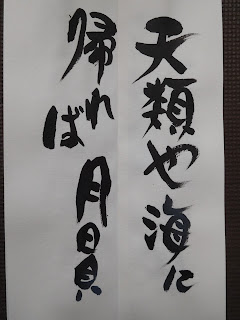 天類や海に
帰れば月日貝